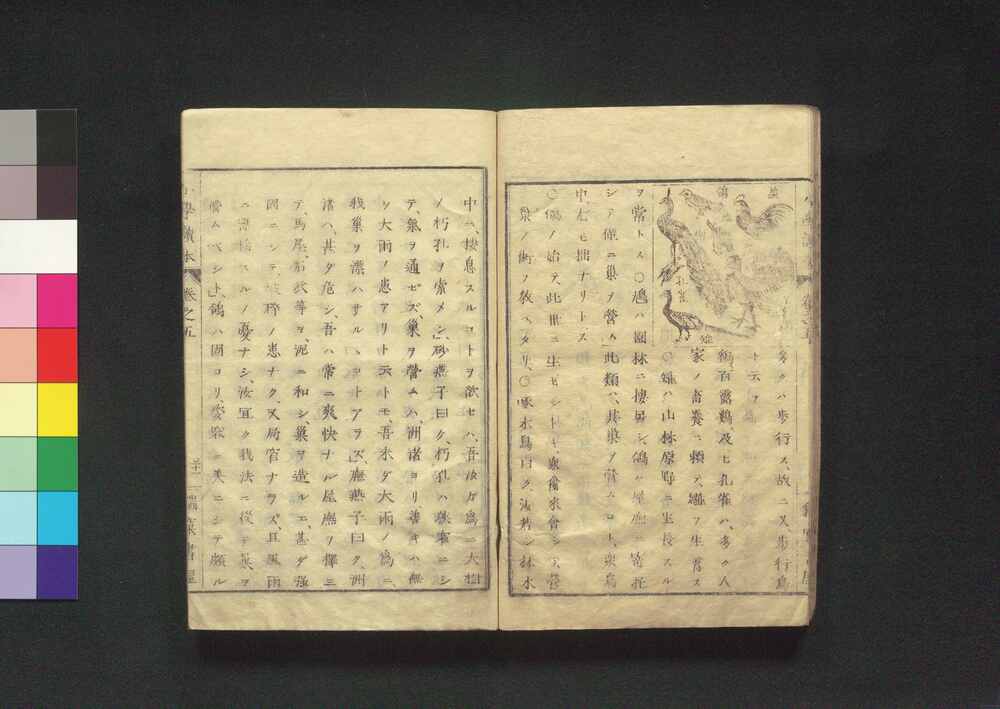 多クハ歩行ス、故ニ又歩行鳥
ト云フ
鶏、百露鶏、及ヒ孔雀ハ、多ク人
家ノ畜養ニ頼テ、雛ヲ生育ス
〇雉ハ山林原野ニ生長スル
ヲ常トス〇鳩ハ園林ニ棲居シ、鴿ハ屋廡ニ寄托
シテ、倶ニ巣ヲ営ム、此類ハ、其巣ヲ営ムコト、衆鳥
中、尤モ拙ナリトス
〇鴿ノ始テ此世ニ生セシトキ、衆禽来會シテ、營
巣ノ術ヲ教ヘタリ、〇啄木鳥曰ク、汝若シ林木
中ニ、棲息スルコトヲ欲セハ、吾汝ガ為ニ大樹
ノ朽孔ヲ索メン、砂燕子曰ク、朽孔ハ狭窄ニシ
テ、氣ヲ通ゼズ、巣ヲ營ムハ、洲渚ヨリ善キハ無
シ大雨ノ患アリト云トモ、吾未ダ大雨ノ為ニ、
我巣ヲ漂ハサルヽコトアラズ、廡燕子曰ク、洲
渚ハ、甚ダ危シ、吾ハ常ニ爽快ナル屋廡ヲ擇ミ
テ、馬尾、
等ヲ泥ニ和シ、巣ヲ造ルニ、甚ダ強
固ニシテ、
ノ患ナク、又局窄ナラズ、且風雨
ニ
スルノ憂ナシ、汝宜ク我法ニ從テ巣ヲ
營ムベシト、鴿ハ固ヨリ、
ニシテ願ル
小學讀本
巻之五
孔雀
雉